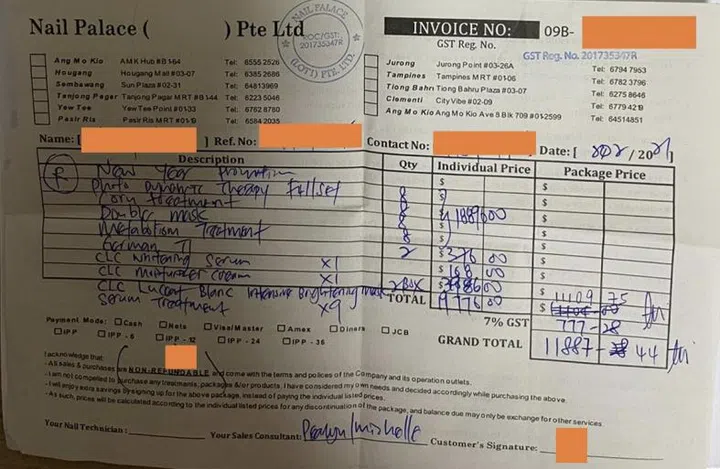 Nail Palace ( ) Pte Ltd
NAIL PALACE
ROC/GST:
201735347R
(LOT1) PTE. LTD.
INVOICE NO: 09B-
GST Reg. No.
GST Reg. No. 201735347R
Ang Mo Kio AMK Hub #B1-64 Tel: 6555 2526
Hougang Hougang Mall #03-07 Tel: 6385 2686
Sembawang Sun Plaza #02-31 Tel: 64813969
Tanjong Pagar Tanjong Pagar MRT #B1-44 Tel: 6223 5046
Yew Tee Yew Tee Point #01-33 Tel: 6762 8780
Pasir Ris Pasir Ris MRT #01-19 Tel: 6584 2035
Jurong Jurong Point #03-26A Tel: 6794 7953
Tampines Tampines MRT #01-06 Tel: 6782 3796
Tiong Bahru Tiong Bahru Plaza #03-07 Tel: 6275 8646
Clementi City Vibe #02-09 Tel: 6779 4219
Ang Mo Kio Ang Mo Kio Ave 8 Blk 709 #01-2599 Tel: 64514851
Name: [ Ref. No: Contact No: Date: [ / 20 21 ]
Description Qty Individual Price Package Price
New Year Promotion
Photo Dynamic Therapy 8
Treatment 8
Mask 8
Metabolism Treatment 8
German 2 $ 376 00
CLC Whitening Serum x1 $ 168 00
CLC Moisturizer Cream x1
CLC Lucent Blanc Intensive Brightening Mask 2 Box
Serum Treatment x9
TOTAL 9776 00 $ 11109 - 75
7% GST 777 - 28
GRAND TOTAL 11887 - 44
Payment Mode: Cash Nets Visa/Master Amex Diners JCB
IPP IPP - 6 IPP - 12 IPP - 24 IPP - 36
I acknowledge that:
- All sales & purchases are NON-REFUNDABLE and come with the terms and polices of the Company and its operation outlets.
- I am not compelled to purchase any treatments, packages &/or products, I have considered my own needs and decided accordingly while purchasing the above.
- I will enjoy extra savings by signing up for the above package, instead of paying the individual listed prices.
- As such, prices will be calculated according to the individual listed prices for any discontinuation of the package, and balance due may only be exchange for other services
Your Nail Technician : Your Sales Consultant: Pearlyn/Mishelle Customer's Signature: